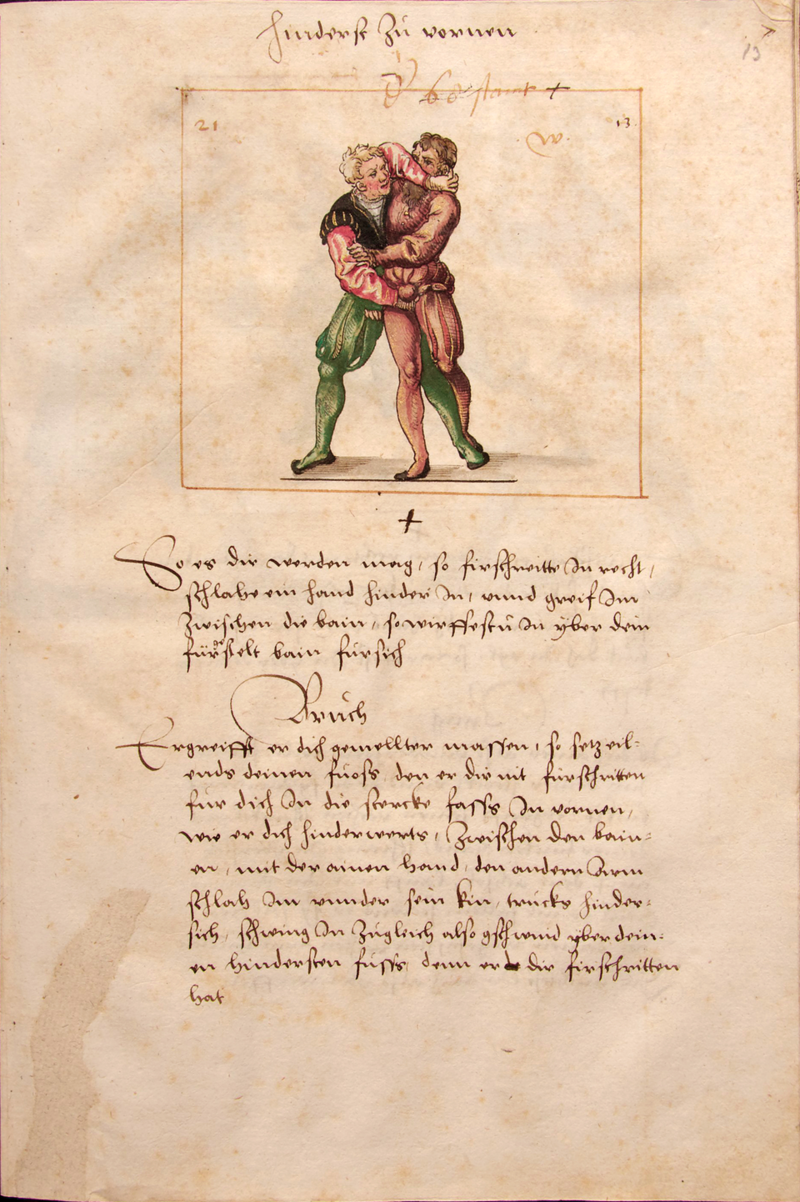 hinderst Zů vornen
13
21
13.
W.
So es dir werden mag, so firschreitte In recht,
schlahe ein hand hinder In, unnd greif Im
Zwischen die bain, so wirffestu In yber dein
fürstelt bain fürsich
Bruch
Ergreifft er dich gemellter massen, so setz eil-
ends deinen fuoss den er dir nit fürschritten
für dich In die stercke fasss In vornen,
wie er dich hinderwerts, Zwischen den bain-
en, mit der ainen hand, den andern Arm
schlah Im vunder sein kin, trucks hinder-
sich, schwing In Zugleich also gschwind yber dein-
en hindersten fusss, denn er dir firschritten
hat